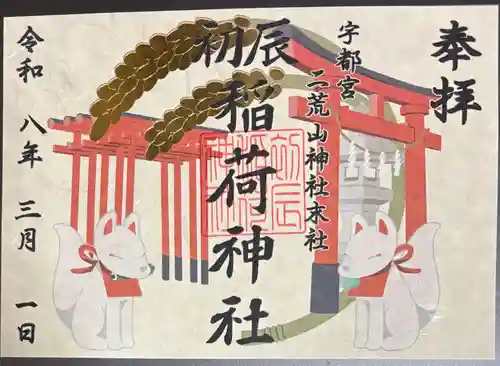 奉拝
宇都宮
二荒山神社末社
初辰
稲荷神社
令和 八年 三月 一日